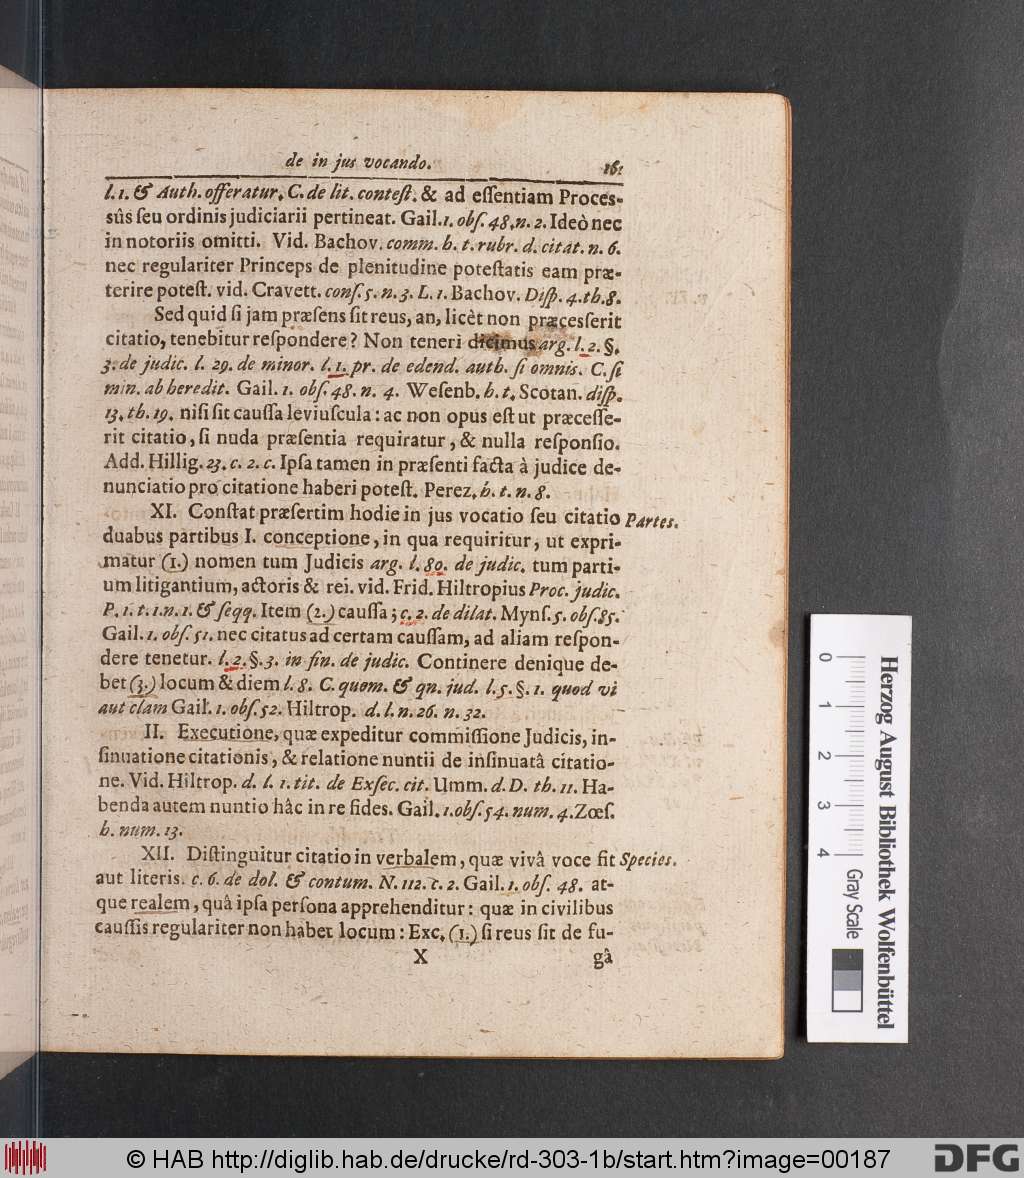 de in jus vocando. 161
l. 1. & Auth. offeratur. C. de lit. contest. & ad eſſentiam Proces-
sûs ſeu ordinis judiciarii pertineat. Gail. 1. obſ. 48. n. 2. Ideò nec
in notoriis omitti. Vid. Bachov. comm. h. t. rubr. d. citat. n. 6.
nec regulariter Princeps de plenitudine poteſtatis eam præ-
terire poteſt. vid. Cravett. conſ. 5. n. 3. L. 1. Bachov. Diſp. 4. th. 8.
Sed quid ſi jam præſens ſit reus, an, licèt non præceſſerit
citatio, tenebitur reſpondere? Non teneri dicimus arg. l. 2. §.
3. de judic. l. 29. de minor. l. 1. pr. de edend. auth. ſi omnis. C. ſi
min. ab heredit. Gail. 1. obſ. 48. n. 4. Weſenb. h. t. Scotan. diſp.
13. th. 19. niſi ſit cauſſa leviuſcula: ac non opus eſt ut præceſſe-
rit citatio, ſi nuda præſentia requiratur, & nulla reſponſio.
Add. Hillig. 23. c. 2. c. Ipſa tamen in præſenti facta à judice de-
nunciatio pro citatione haberi poteſt. Perez. h. t. n. 8.
XI. Conſtat præſertim hodie in jus vocatio ſeu citatio Partes.
duabus partibus I. conceptione, in qua requiritur, ut expri-
matur (1.) nomen tum Judicis arg. l. 80. de judic. tum parti-
um litigantium, actoris & rei. vid. Frid. Hiltropius Proc. judic.
P. 1. t. 1. n. 1. & ſeqq. Item (2.) cauſſa; c. 2. de dilat. Mynſ. 5. obſ. 85.
Gail. 1. obſ. 51. nec citatus ad certam cauſſam, ad aliam reſpon-
dere tenetur. l. 2. §. 3. in fin. de judic. Continere denique de-
bet (3.) locum & diem l. 8. C. quom. & qn. jud. l. 5. §. 1. quod vi
aut clam Gail. 1. obſ. 52. Hiltrop. d. l. n. 26. n. 32.
II. Executione, quæ expeditur commiſſione Judicis, in-
ſinuatione citationis, & relatione nuntii de inſinuatâ citatio-
ne. Vid. Hiltrop. d. l. 1. tit. de Exſec. cit. Umm. d. D. th. 11. Ha-
benda autem nuntio hâc in re fides. Gail. 1. obſ. 54. num. 4. Zœſ.
h. num. 13.
XII. Diſtinguitur citatio in verbalem, quæ vivâ voce fit Species.
aut literis. c. 6. de dol. & contum. N. 112. c. 2. Gail. 1. obſ. 48. at-
que realem, quâ ipſa perſona apprehenditur: quæ in civilibus
cauſſis regulariter non habet locum: Exc. (1.) ſi reus ſit de fu-
X gâ
Herzog August Bibliothek Wolfenbüttel
0 1 2 3 4 Gray Scale
© HAB http://diglib.hab.de/drucke/rd-303-1b/start.htm?image=00187
DFG